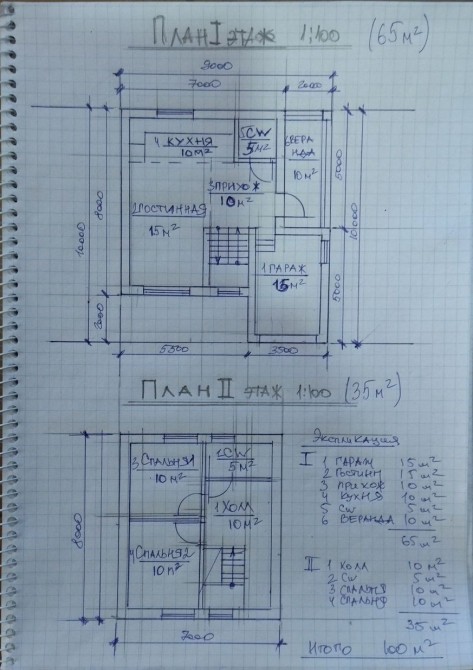 ПЛАН I ЭТАЖ 1:100 (65 м²)
9000
7000
2000
4 КУХНЯ
10 м²
5 СW
5 м²
6 ВЕРАНДА
10 м²
3 ПРИХОЖ
10 м²
2 ГОСТИННАЯ
15 м²
1 ГАРАЖ
15 м²
10000
8000
2000
5000
10000
5000
5500
3500
ПЛАН II ЭТАЖ 1:100 (35 м²)
3 СПАЛЬНЯ1
10 м²
2 СW
5 м²
1 ХОЛЛ
10 м²
4 СПАЛЬНЯ2
10 м²
8000
7000
Экспликация
I 1 ГАРАЖ 15 м²
2 ГОСТИНН 15 м²
3 ПРИХОЖ 10 м²
4 КУХНЯ 10 м²
5 СW 5 м²
6 ВЕРАНДА 10 м²
65 м²
II 1 ХОЛЛ 10 м²
2 СW 5 м²
3 СПАЛЬНЯ 10 м²
4 СПАЛЬНЯ 10 м²
35 м²
ИТОГО 100 м²